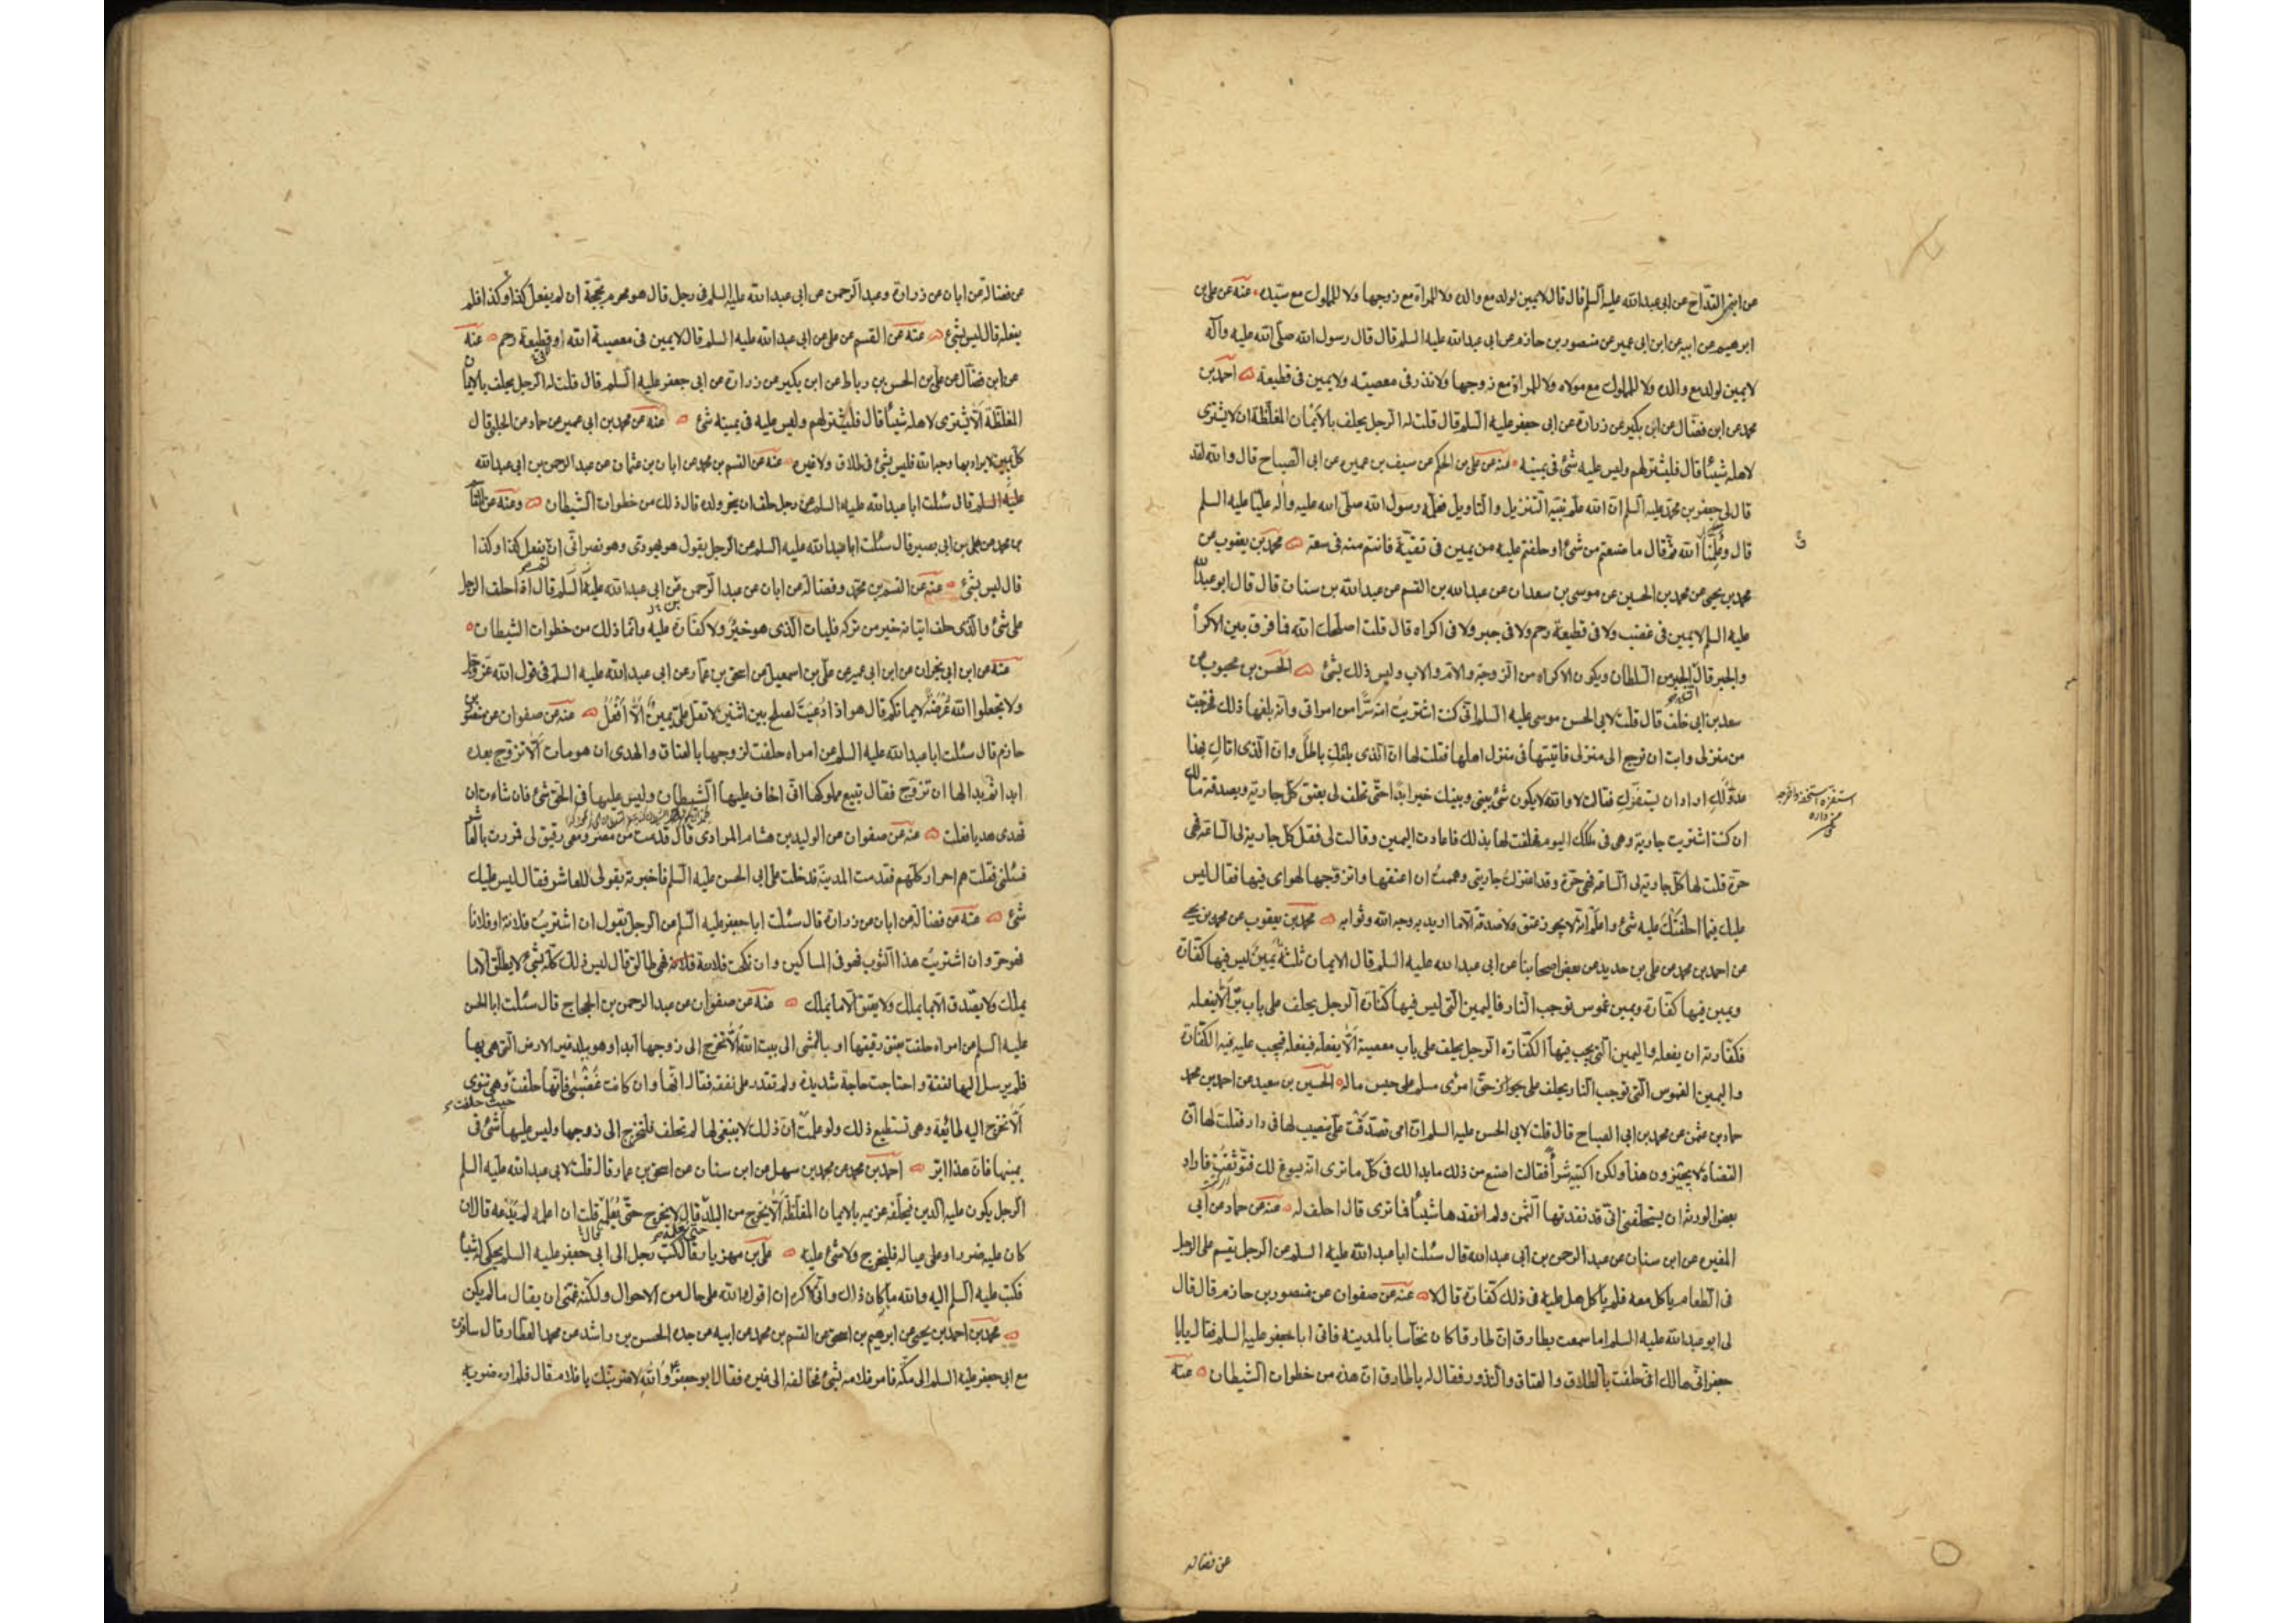 عن ابن القداح عن ابى عبد الله عليه السلم قال قال لا يمين لولد مع والده ولا للمراة مع زوجها ولا للمملوك مع سيده عنه عن على بن
ابرهيم عن ابيه عن ابن ابى عمير عن منصور بن حازم عن ابى عبد الله عليه السلم قال قال رسول الله صلى الله عليه وآله
لا يمين لولد مع والده ولا للمملوك مع مولاه ولا للمراة مع زوجها ولا نذر فى معصيته ولا يمين فى قطيعة احمد بن
محمد عن ابن فضال عن ابن بكير عن زرارة عن ابى جعفر عليه السلم قال قلت له الرجل يحلف بالايمان المغلظة ان لا يشترى
لاهله شيئا قال فليشتر لهم وليس عليه شئ فى يمينه منه عن على بن الحكم عن سيف بن عميره عن ابى الصباح قال والله لقد
قال لى جعفر بن محمد عليه السلم ان الله علم نبيه التنزيل والتاويل فعلمه رسول الله صلى الله عليه وآله عليا عليه السلم
قال وعلمنا الله ثم قال ما صنعتم من شئ او حلفتم عليه من يمين فى تقية فانتم منه فى سعة محمد بن يعقوب عن
محمد بن يحيى عن محمد بن الحسين عن موسى بن سعدان عن عبد الله بن القسم عن عبد الله بن سنان قال قال ابو عبد الله
عليه السلم لا يمين فى غضب ولا فى قطيعة رحم ولا فى جبر ولا فى اكراه قال قلت اصلحك الله فما فرق بين الاكراه
والجبر قال الجبر من السلطان ويكون الاكراه من الزوجة والام والاب وليس ذلك بشئ الحسن بن محبوب عن
سعد بن ابى خلف قال قلت لابى الحسن موسى عليه السلم انى كنت اشتريت امة سرا من امراتى وانه بلغها ذلك فخرجت
من منزلى وابت ان ترجع الى منزلى فاتيتها فى منزل اهلها فقلت لها ان الذى بلغك باطل وان الذى اتاك بهذا
عدو لك اراد ان يستفزك فقالت لا والله لا يكون شئ بينى وبينك خير ابدا حتى تحلف لى بعتق كل جارية وبصدقة مالك
ان كنت اشتريت جارية وهى فى ملكك اليوم فحلفت لها بذلك فاعادت اليمين وقالت لى فقل كل جارية لى الساعة فهى
حرة قلت لها كل جارية لى الساعة فهى حرة وقد اعتزلت جاريتى وهممت ان اعتقها واتزوجها لهواى فيها فقال ليس
عليك فيما احلفتك عليه شئ واعلم انه لا يجوز عتق ولا صدقة الا ما اريد به وجه الله وثوابه محمد بن يعقوب عن محمد بن يحيى
عن احمد بن محمد عن على بن حديد عن بعض اصحابنا عن ابى عبد الله عليه السلم قال الايمان ثلثة يمين ليس فيها كفارة
ويمين فيها كفارة ويمين غموس توجب النار فاليمين التى ليس فيها كفارة الرجل يحلف على باب بر الا يفعله
فكفارته ان يفعله واليمين التى يجب فيها الكفارة الرجل يحلف على باب معصية الا يفعله فيفعله فيجب عليه فيه الكفارة
واليمين الغموس التى توجب النار يحلف على حق امرئ مسلم على حبس ماله الحسين بن سعيد عن احمد بن محمد
حماد بن عثمن عن محمد بن ابى الصباح قال قلت لابى الحسن عليه السلم ان امى تصدقت على بنصيب لها فى دار فقلت لها ان
القضاة لا يجيزون هذا ولكن اكتبيه شراً فقالت اصنع من ذلك ما بدا لك فى كل ما ترى انه يسوغ لك فتوثقت فاراد
بعض الورثة ان يستحلفنى انى قد نقدتها الثمن ولم انقدها شيئا فما ترى قال احلف له منه عن حماد عن ابى
المغيره عن ابن سنان عن عبد الرحمن بن ابى عبد الله قال سئلت ابا عبد الله عليه السلم عن الرجل يقسم على الرجل
فى الطعام ياكل معه فلم ياكل هل عليه فى ذلك كفارة قال لا عنه عن صفوان عن منصور بن حازم قال قال
لى ابو عبد الله عليه السلم اما سمعت بطارق ان طارقا كان نخاسا بالمدينه فاتى ابا جعفر عليه السلم فقال يا ابا
جعفر انى هالك انى حلفت بالطلاق والعتاق والنذور فقال له يا طارق ان هذه من خطوات الشيطان عنه
عن فضاله
عن فضالة عن ابان عن زرارة وعبد الرحمن عن ابى عبد الله عليه السلم فى رجل قال هو محرم بحجة ان لم يفعل كذا وكذا فلم
يفعله قال ليس بشئ عنه عن القسم عن على عن ابى عبد الله عليه السلم قال لا يمين فى معصية الله او قطيعة رحم عنه
عن ابن فضال عن على بن الحسن بن رباط عن ابن بكير عن زرارة عن ابى جعفر عليه السلم قال قلت له الرجل يحلف بالايمان
المغلظة الا يشترى لاهله شيئا قال فليشتر لهم وليس عليه فى يمينه شئ عنه عن محمد بن ابى عمير عن حماد عن الحلبى قال
كل يمين لا يراد بها وجه الله فليس بشئ فى طلاق ولا غيره عنه عن القسم بن محمد عن ابان بن عثمان عن عبد الرحمن بن ابى عبد الله
عليه السلم قال سئلت ابا عبد الله عليه السلم عن رجل حلف ان ينحر ولده قال ذلك من خطوات الشيطان وعنه عن القسم
بن محمد عن على بن ابى بصير قال سئلت ابا عبد الله عليه السلم عن الرجل يقول هو يهودى وهو نصرانى ان لم يفعل كذا وكذا
قال ليس بشئ عنه عن القسم بن محمد وفضالة عن ابان عن عبد الرحمن عن ابى عبد الله عليه السلم قال اذا حلف الرجل
على شئ والذى حلف اتيانه خير من تركه فليات الذى هو خير ولا كفارة عليه وانما ذلك من خطوات الشيطان
عنه عن ابن ابى نجران عن ابن ابى عمير عن على بن اسمعيل عن اسحق بن عمار عن ابى عبد الله عليه السلم فى قول الله عز وجل
ولا تجعلوا الله عرضة لايمانكم قال هو اذا دعيت لصلح بين اثنين لا تقل على يمين الا افعل عنه عن صفوان عن منصور بن
حازم قال سئلت ابا عبد الله عليه السلم عن امراه حلفت لزوجها بالعتاق والهدى ان هو مات الا تزوج بعده
ابدا ثم بدا لها ان تزوج فقال تبيع مملوكها انى اخاف عليها الشيطان وليس عليها فى الحق شئ فان شاءت ان
تهدى هديا فعلت عنه عن صفوان عن الوليد بن هشام المرادى قال قدمت من مصر ومعى رقيق لى فمررت بالعاشر
فسئلنى فقلت هم احرار كلهم فقدمت المدينة فدخلت على ابى الحسن عليه السلم فاخبرته بقولى للعاشر فقال ليس عليك
شئ عنه عن فضالة عن ابان عن زرارة قال سئلت ابا جعفر عليه السلم عن الرجل يقول ان اشتريت فلانة او فلانا
فهو حر وان اشتريت هذا الثوب فهو فى المساكين وان نكحت فلانة فهى طالق قال ليس ذلك كله بشئ لا يطلق الا ما
يملك ولا يصدق الا بما يملك ولا يعتق الا ما يملك عنه عن صفوان عن عبد الرحمن بن الحجاج قال سئلت ابا الحسن
عليه السلم عن امراه حلفت بعتق رقيقها او بالمشى الى بيت الله الا تخرج الى زوجها ابدا وهو ببلد غير الارض التى هى بها
فلم يرسل اليها نفقة واحتاجت حاجة شديدة ولم تقدر على نفقة فقال انها وان كانت غضبى فانها حلفت وهى تنوى
الا تخرج اليه طائعة وهى تستطيع ذلك ولو علمت ان ذلك لا ينبغى لها لم تحلف فلتخرج الى زوجها وليس عليها شئ فى
يمينها فان هذا ابر احمد بن محمد عن محمد بن سهل عن ابن سنان عن اسحق بن عمار قال قلت لابى عبد الله عليه السلم
الرجل يكون عليه الدين فيحلفه غريمه بالايمان المغلظة الا يخرج من البلد قال لا يخرج حتى يعلمه قلت ان اعلمه لم يدعه قال ان
كان عليه ضررا وعلى عياله فليخرج ولا شئ عليه على بن مهزيار قال كتب رجل الى ابى جعفر عليه السلم يحكى له شيئا
فكتب عليه السلم اليه والله ما كان ذاك وانى لاكره ان اقول والله على حال من الاحوال ولكنه غمنى ان يقال ما لم يكن
محمد بن احمد بن يحيى عن ابرهيم بن اسحق عن القسم بن محمد عن ابيه عن جده الحسن بن راشد عن محمد العطار قال سافرت
مع ابى جعفر عليه السلم الى مكة فامر غلامه بشئ فخالفه الى غيره فقال ابو جعفر والله لاضربنك يا غلام قال فلم اره ضربه